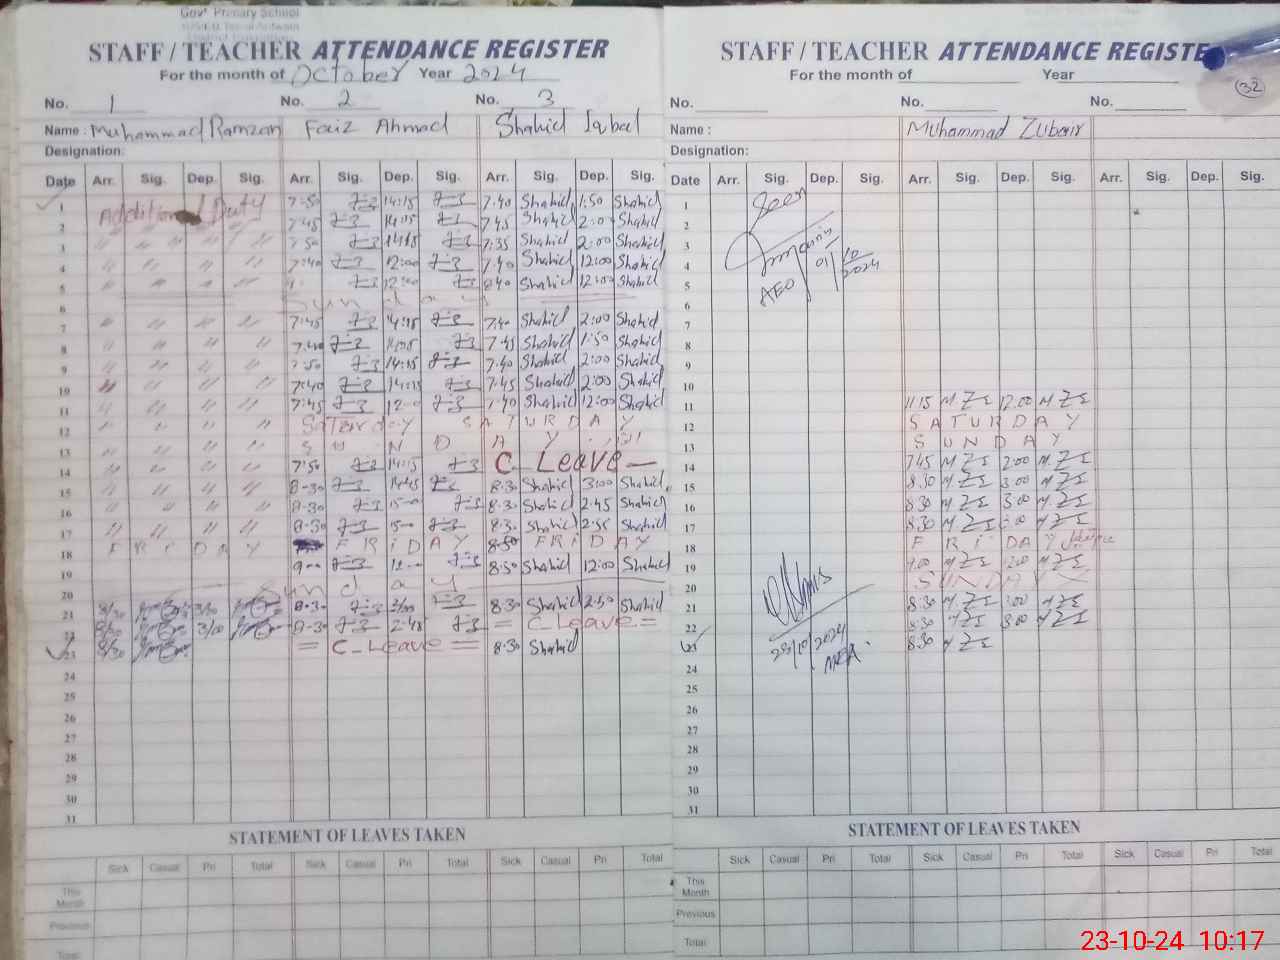 Govt Primary School
STAFF / TEACHER ATTENDANCE REGISTER
For the month of October Year 2024
No. 1 No. 2 No. 3
Name : Muhammad Ramzan Faiz Ahmad Shahid Iqbal
Designation:
Date Arr. Sig. Dep. Sig. Arr. Sig. Dep. Sig. Arr. Sig. Dep. Sig.
1 Additional Duty 7:50 14:15 7.40 Shahid 1:50 Shahid
2 7:45 14:15 7.45 Shahid 2:0 Shahid
3 " " " " 7:50 14:15 7:35 Shahid 2:00 Shahid
4 " " " " 7:40 12:00 7.40 Shahid 12:00 Shahid
5 " " " " 12:00 8:40 Shahid 12:00 Shahid
6 Sunday
7 " " " " 7:45 14:15 7.40 Shahid 2:00 Shahid
8 " " " " 7:40 7.45 Shahid 1:50 Shahid
9 " " " " 7:50 14:15 7.40 Shahid 2:00 Shahid
10 " " " " 7:40 14:15 7.45 Shahid 2:00 Shahid
11 " " " " 7:45 12:0 7.40 Shahid 12:00 Shahid
12 " " " " Saterday SATURDAY
13 " " " " SUNDAY
14 " " " " 7:50 14:15 C_Leave
15 " " " " 8-30 14:45 8.30 Shahid 3:00 Shahid
16 " " " " 8-30 15:00 8.30 Shahid 2.45 Shahid
17 " " " " 8-30 15:00 8.30 Shahid 2:55 Shahid
18 FRIDAY FRIDAY 8:50 FRIDAY
19 9:00 12:00 8:50 Shahid 12:00 Shahid
20 Sunday
21 8/30 3/30 8-30 3/00 8:30 Shahid 2:50 Shahid
22 8/30 3/00 8-30 2-45 = C_Leave =
23 8/30 = C_Leave = 8.30 Shahid
24
25
26
27
28
29
30
31
STATEMENT OF LEAVES TAKEN
Sick Casual Pri Total Sick Casual Pri Total Sick Casual Pri Total
This Month
Previous
Total
STAFF / TEACHER ATTENDANCE REGISTE
For the month of Year
32
No. No. No.
Name : Muhammad Zubair
Designation:
Date Arr. Sig. Dep. Sig. Arr. Sig. Dep. Sig. Arr. Sig. Dep. Sig.
1 Seen
2
3
4 01/10/2024
5 AEO
6
7
8
9
10
11 11:15 MZI 12:00 MZI
12 SATURDAY
13 SUNDAY
14 7:45 MZI 2:00 MZI
15 8:30 MZI 3:00 MZI
16 8:30 MZI 3:00 MZI
17 8:30 MZI 3:00 MZI
18 FRIDAY
19 9:00 MZI 12:00 MZI
20 SUNDAY
21 8:30 MZI 3:00 MZI
22 8:30 MZI 3:00 MZI
23 23/10/2024 MEA 8:30 MZI
24
25
26
27
28
29
30
31
STATEMENT OF LEAVES TAKEN
Sick Casual Pri Total Sick Casual Pri Total Sick Casual Pri Total
This Month
Previous
Total
23-10-24 10:17